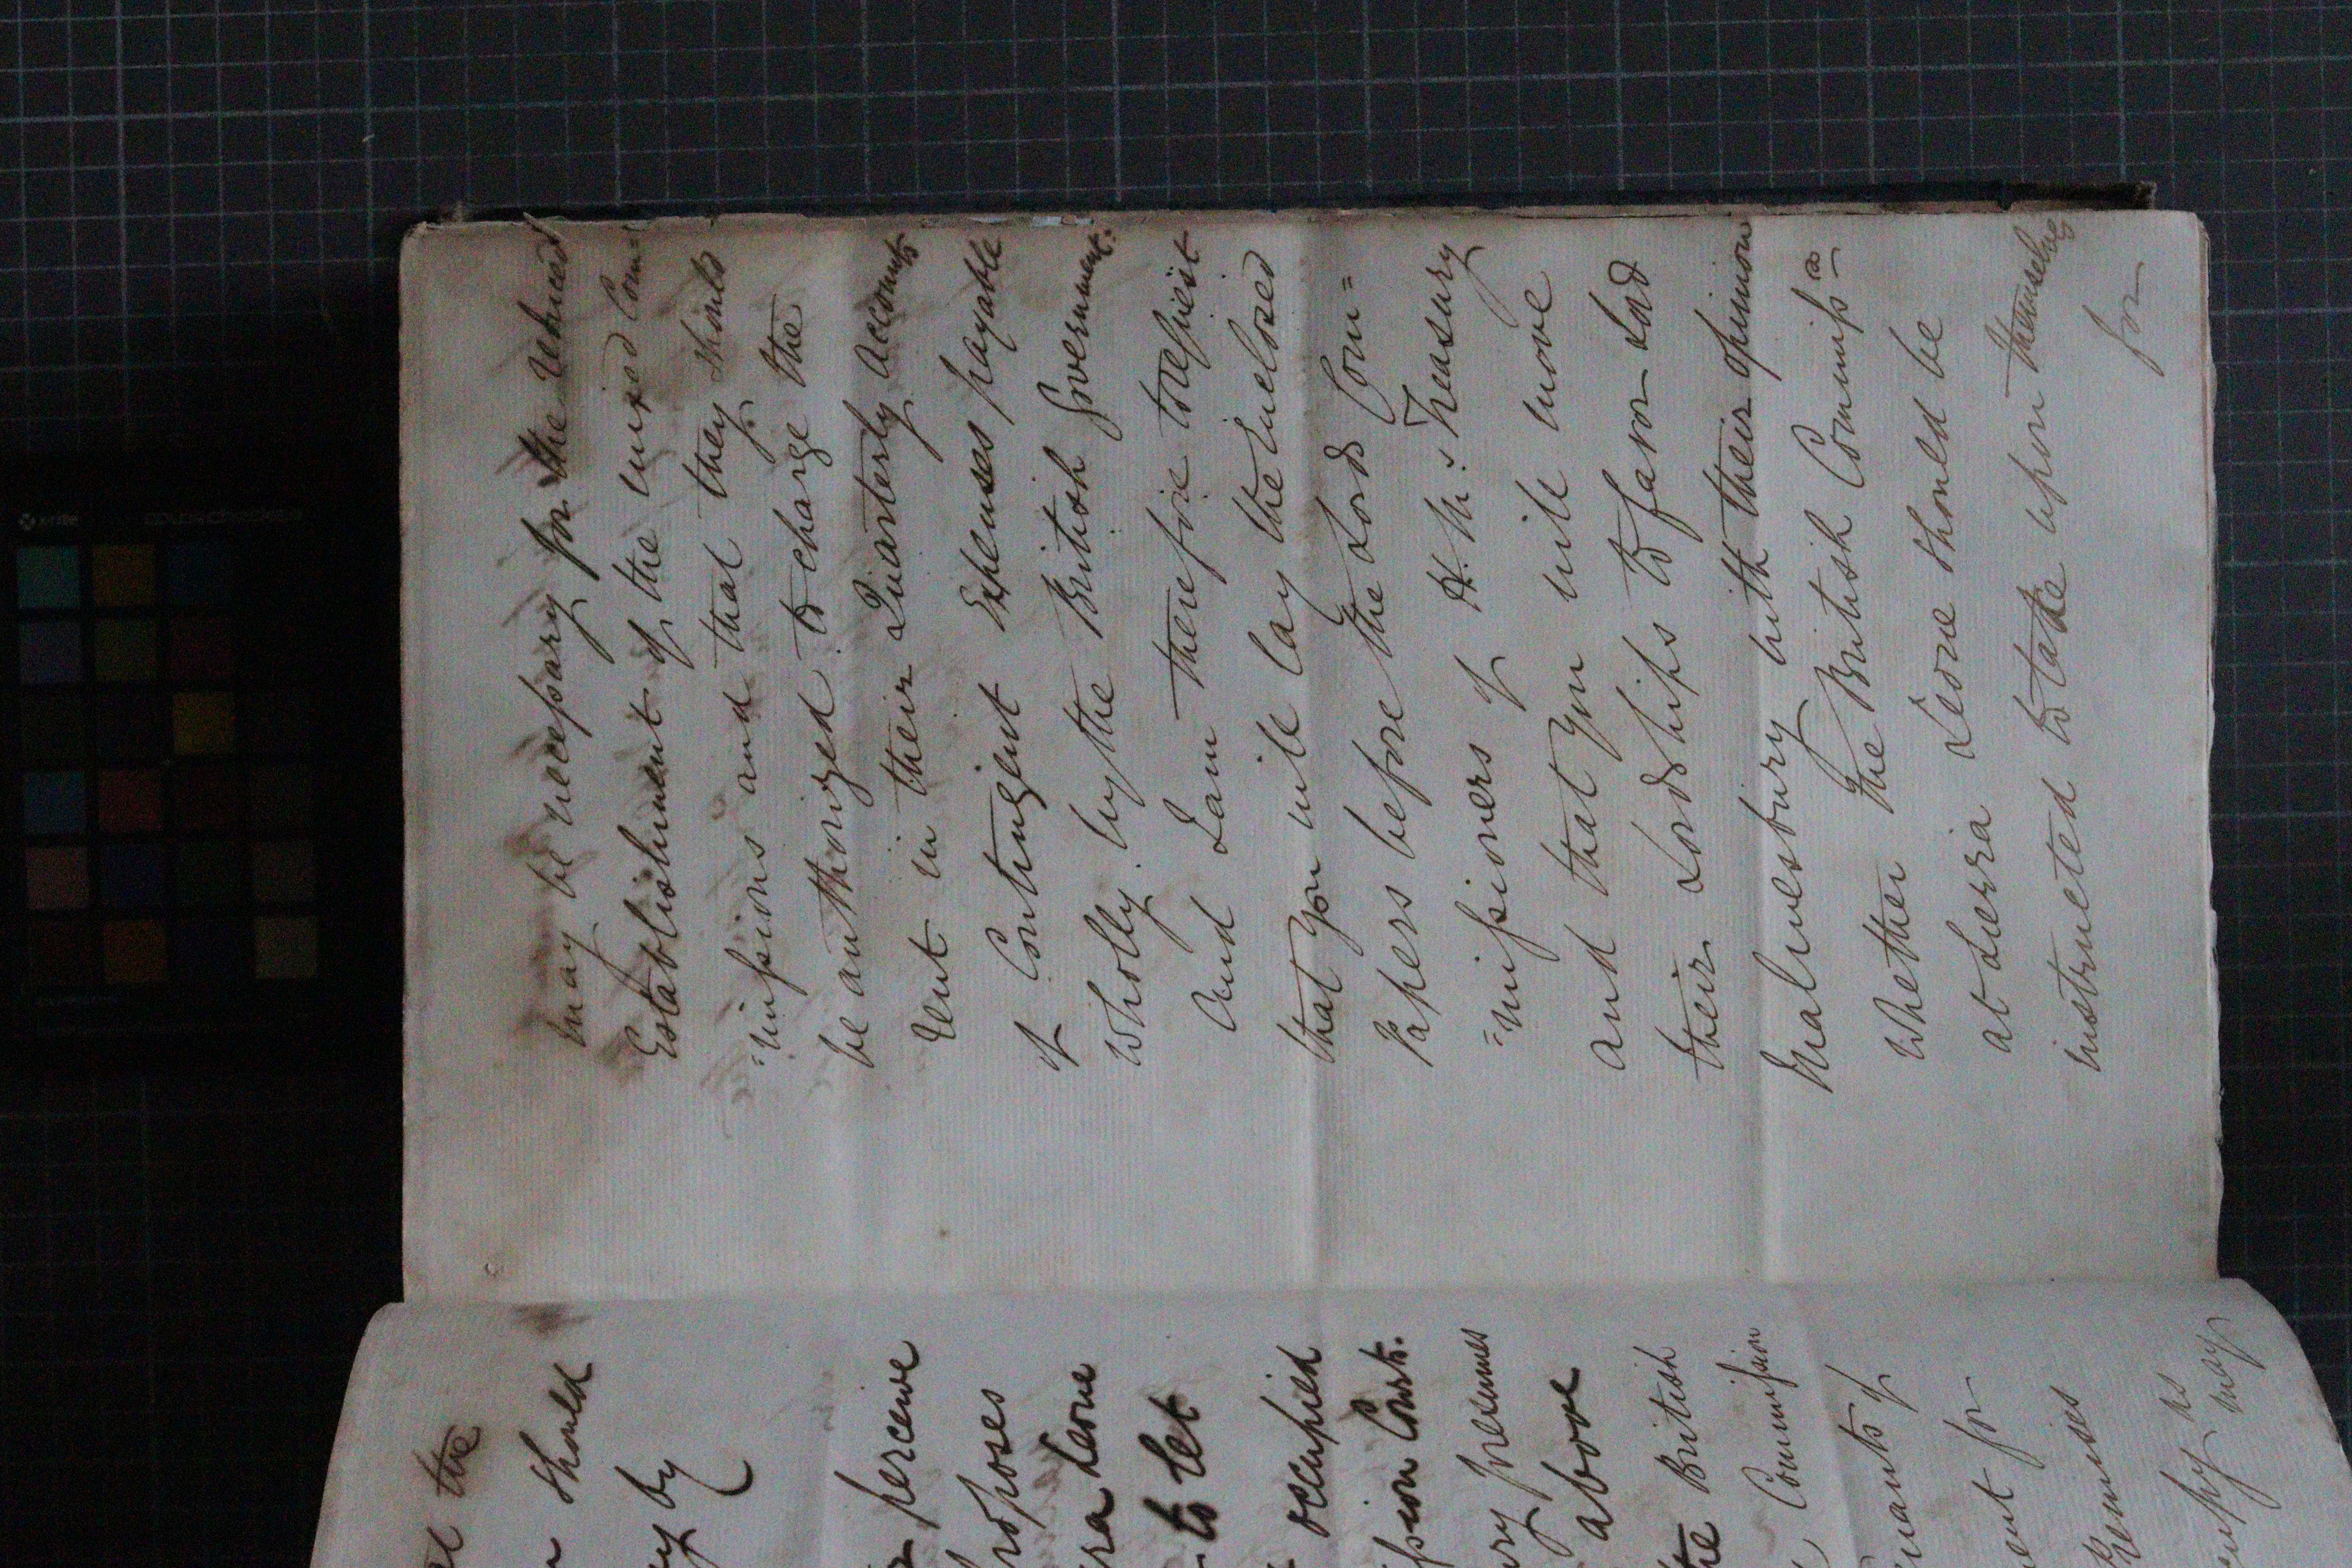 may be necessary for the reduced
Establishment of the mixed Com=
=missions and that they should
be authorized to charge the
rent in their Quarterly Accounts
of Contingent Expenses payable
wholly by the British Government.
And I am therefore to request
that you will lay the Inclosed
Papers before the Lords Com=
=missioners of H. M.'s Treasury
and that you will move
their Lordships to favor Lord
Malmesbury with their opinion
whether the British Commissrs
at Sierra Leone should be
instructed to take upon themselves
for
the
should
by
perceive
proposes
Leone
to let
occupied
Court.
presumes
above
British
Commission
for
Premises
as
may